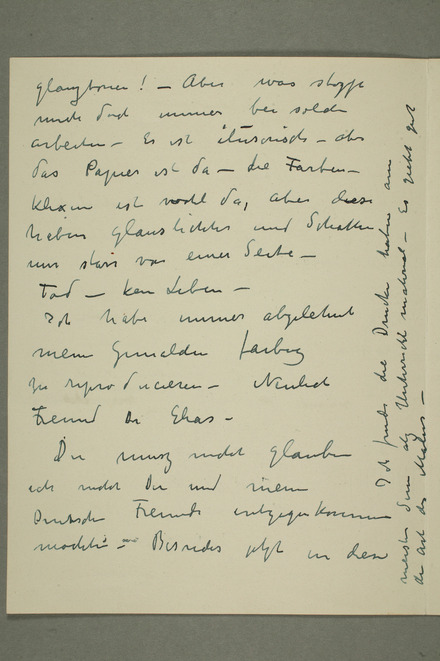 glanztoner! – Aber was stoppt
mich doch immer bei solch
arbeiten – Es ist illusorisch – aber
das Papier ist da – die Farben –
ist wohl da, aber diese
haben Glanslichter und Schatten
nur starr von einer Seite –
Tod – kein Leben –
Ich habe immer abgelehnt
meine Gemälde farbig
zu reproducieren – Neulich
Freund Dr Elias –
Du musz nicht glauben
ich nicht Dir und meine
Deutsche Freunde entgegenkommen
möchte – Besonders jetzt in diese
Ich finde die Drucke haben am
meisten Sinn als Unterricht material – Es giebt gut
die Art des Malers –